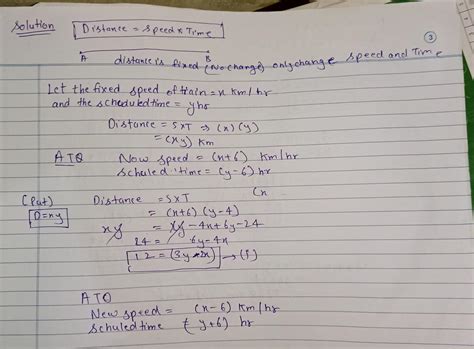 Solution
Distance = speed x Time
3
A B
distance is fixed (No change) only change speed and Time
Let the fixed speed of train = x Km/hr
and the scheduled time = y hr
Distance = SxT ⇒ (x) (y)
= (xy) Km
ATQ Now speed = (x+6) Km/hr
Schuled time = (y-6) hr
(x
(Put) Distance = SxT
D=xy = (x+6) (y-4)
xy = xy -4x+6y-24
24 = 6y-4x
12 = (3y-2x) → (1)
ATQ
New speed = (x-6) Km/hr
Schuled time = (y+6) hr